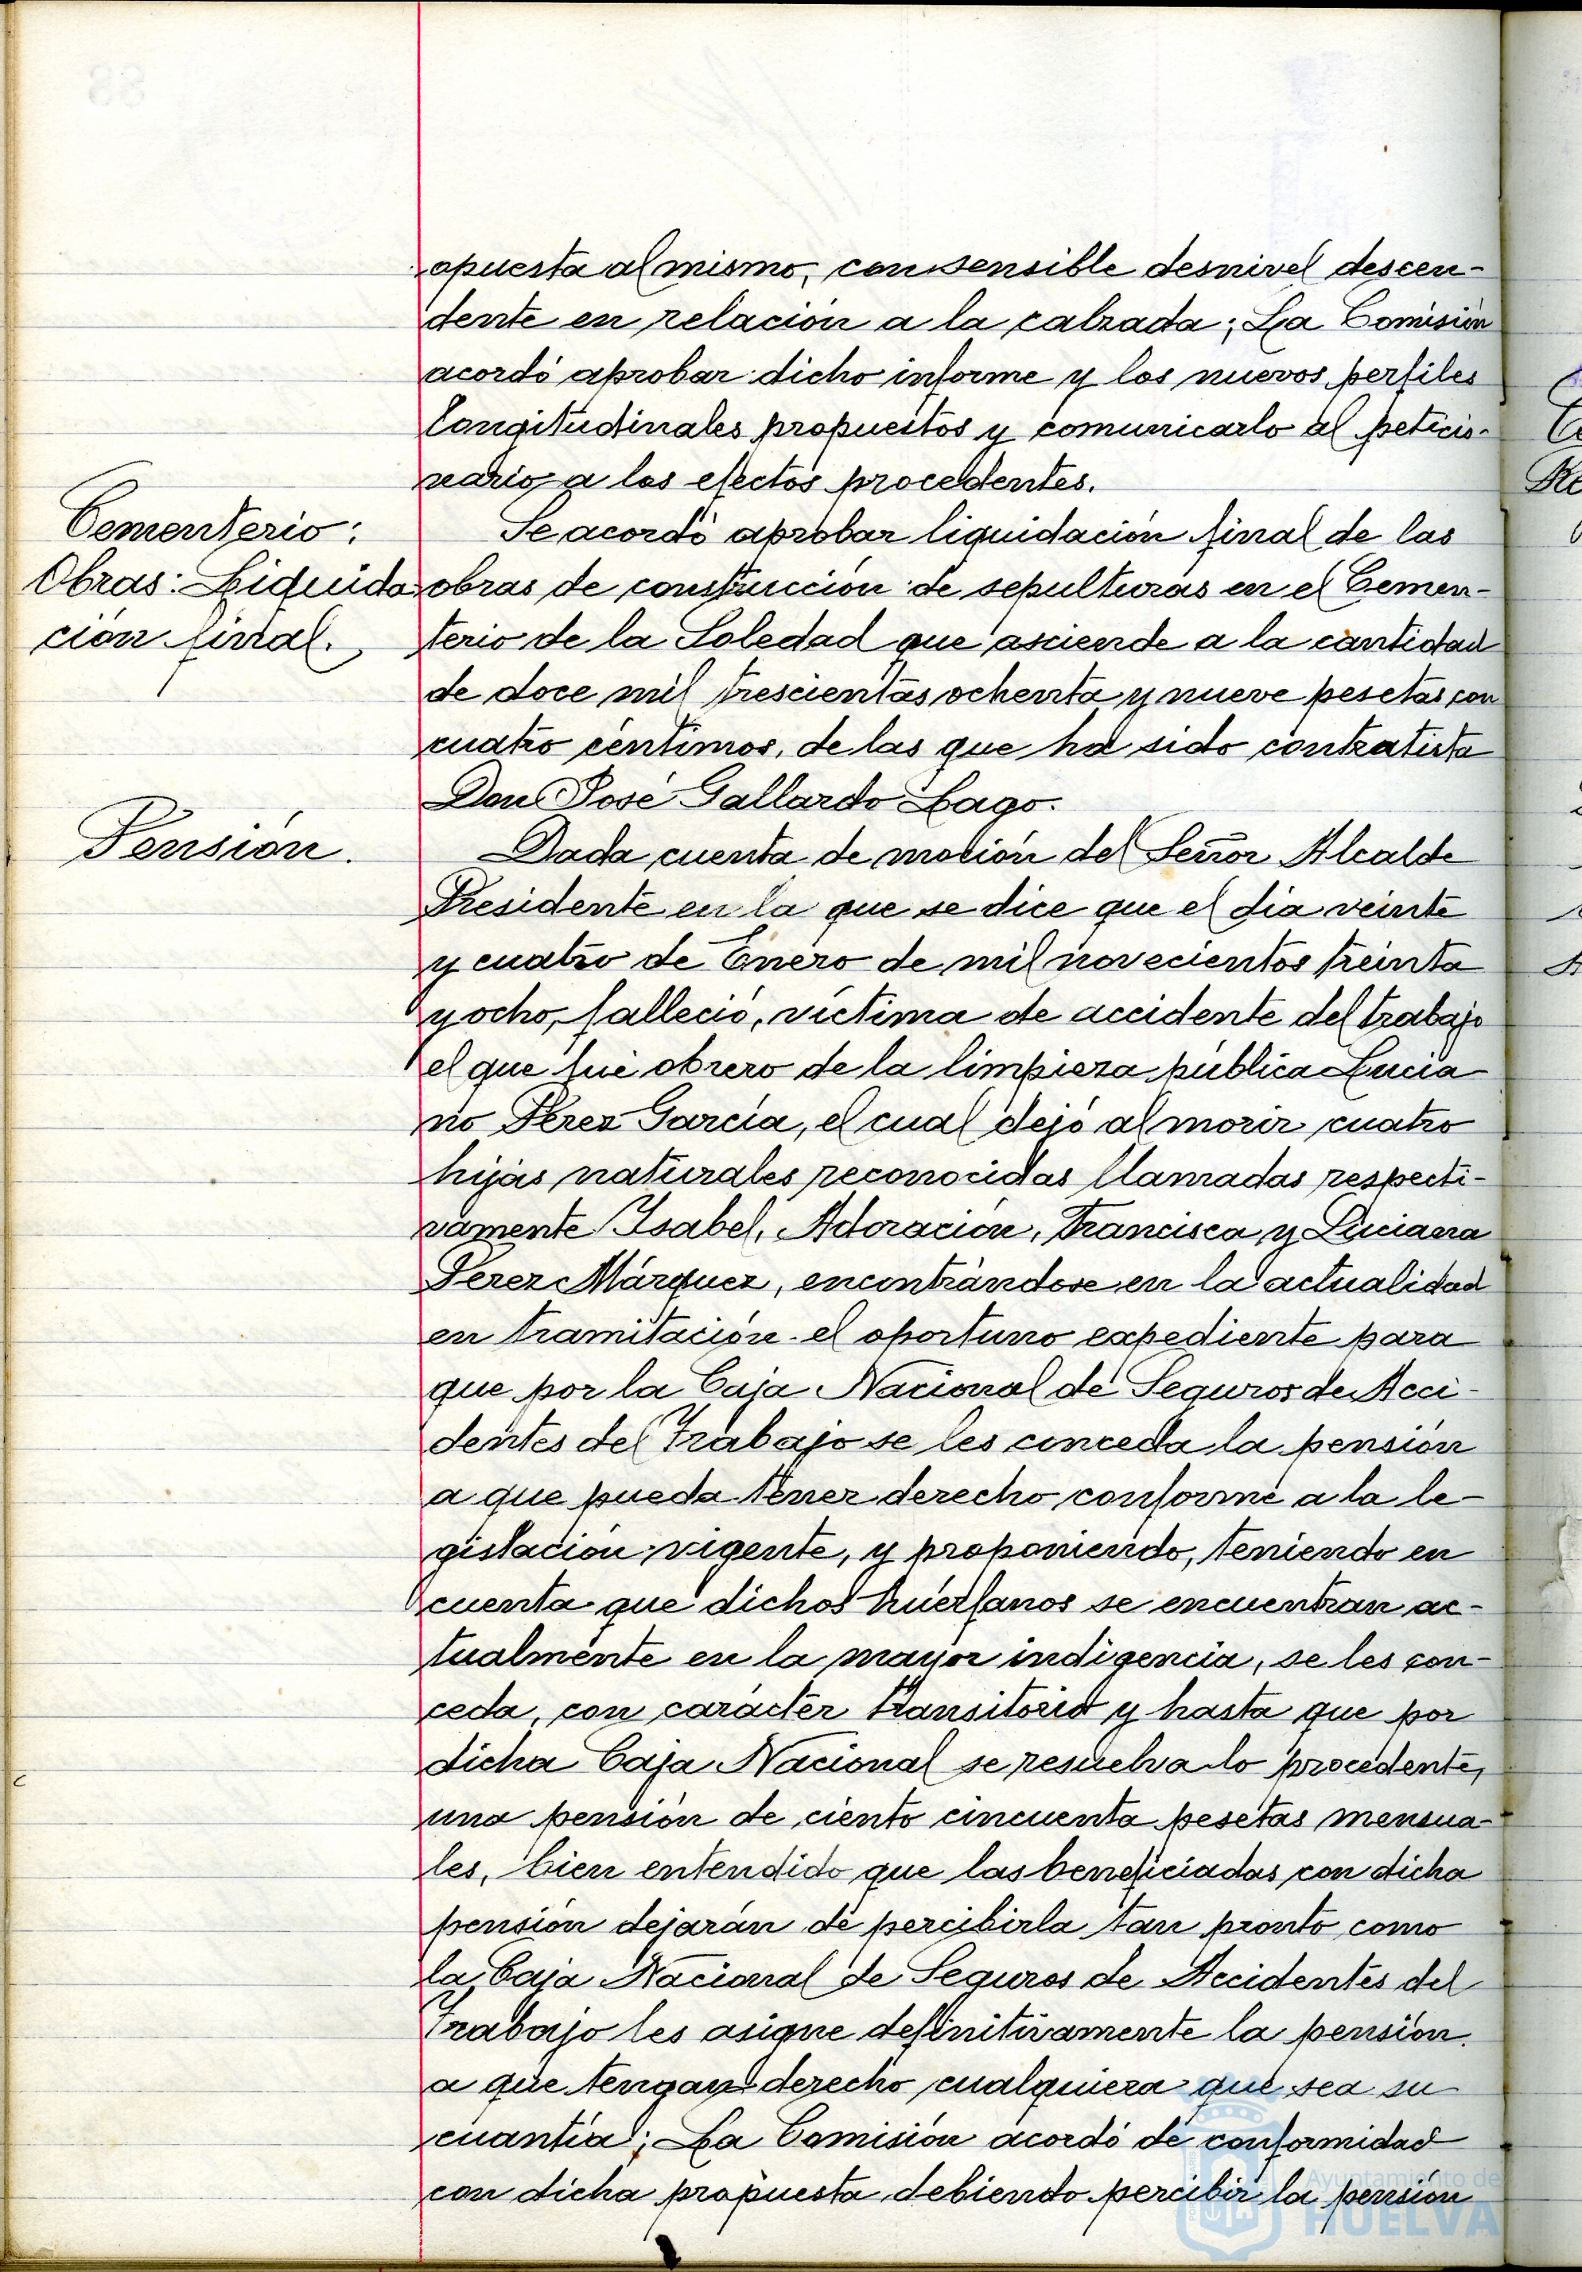 opuesta al mismo, con sensible desnivel descen-
dente en relación a la calzada; La Comisión
acordó aprobar dicho informe y los nuevos perfiles
longitudinales propuestos y comunicarlo al peticio-
nario a los efectos procedentes.
Cementerio:
Obras: Liquida
ción final.
Se acordó aprobar liquidación final de las
obras de construcción de sepulturas en el Cemen-
terio de la Soledad que asciende a la cantidad
de doce mil trescientas ochenta y nueve pesetas con
cuatro céntimos, de las que ha sido contratista
Don José Gallardo Lago.
Pensión.
Dada cuenta de moción del Señor Alcalde
Presidente en la que se dice que el dia veinte
y cuatro de Enero de mil novecientos treinta
y ocho, falleció, victima de accidente del trabajo
el que fué obrero de la limpieza pública Lucia
no Pérez García, el cual dejó al morir cuatro
hijas naturales reconocidas llamadas respecti-
vamente Isabel, Adoración, Francisca y Luciana
Perez Márquez, encontrándose en la actualidad
en tramitación el oportuno expediente para
que por la Caja Nacional de Seguros de Acci-
dentes del Trabajo se les conceda la pensión
a que pueda tener derecho conforme a la le-
gislación vigente, y proponiendo, teniendo en
cuenta que dichos huérfanos se encuentran ac-
tualmente en la mayor indigencia, se les con-
ceda, con carácter transitorio y hasta que por
dicha Caja Nacional se resuelva lo procedente,
una pensión de ciento cincuenta pesetas mensua-
les, bien entendido que las beneficiadas con dicha
pensión dejarán de percibirla tan pronto como
la Caja Nacional de Seguros de Accidentes del
Trabajo les asigne definitivamente la pensión
a que tengan derecho cualquiera que sea su
cuantía; La Comisión acordó de conformidad
con dicha propuesta debiendo percibir la pensión
Ayuntamiento de
HUELVA